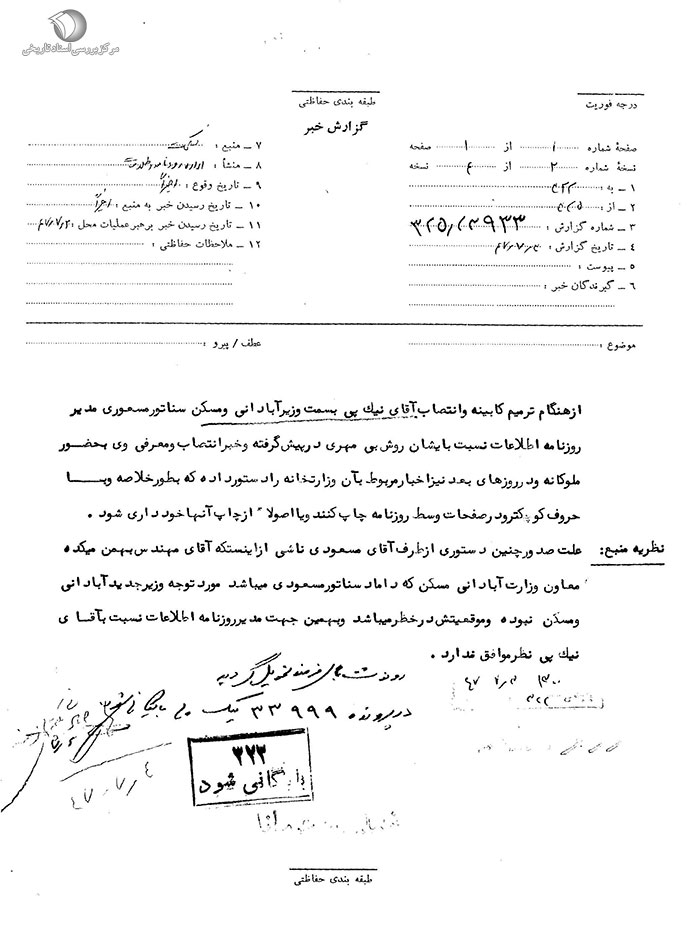 مرکز بررسی اسناد تاریخی
طبقه بندی حفاظتی
درجه فوریت
گزارش خبر
صفحهٔ شماره ۱ از ۱ صفحه
نسخهٔ شماره ۲ از ۴ نسخه
۱ ـ به : ۳۲۲
۲ ـ از :
۳ ـ شماره گزارش :
۴ ـ تاریخ گزارش :
۵ ـ پیوست :
۶ ـ گیرندگان خبر :
۷ ـ منبع :
۸ ـ منشأ : اداره روزنامه اطلاعات
۹ ـ تاریخ وقوع : اخیراً
۱۰ ـ تاریخ رسیدن خبر به منبع : اخیراً
۱۱ ـ تاریخ رسیدن خبر برهبر عملیات محل :
۱۲ ـ ملاحظات حفاظتی :
موضوع :
عطف / پیرو :
ازهنگام ترمیم کابینه وانتصاب آقای نیك پی بسمت وزیرآبادانی ومسکن سناتورمسعودی مدیر
روزنامه اطلاعات نسبت بایشان روش بی مهری درپیش گرفته وخبرانتصاب ومعرفی وی بحضور
ملوکانه ودرروزهای بعد نیزاخبارمربوط بآن وزارتخانه رادستورداده که بطورخلاصه وبـــا
حروف کوچکتردرصفحات وسط روزنامه چاپ کنند ویااصولا" ازچاپ آنهاخود داری شود .
نظریه منبع:
علت صدورچنین دستوری ازطرف آقای مسعودی ناشی ازاینستکه آقای مهندس بهمن میکده
معاون وزارت آبادانی مسکن که داماد سناتورمسعودی میباشد مورد توجه وزیرجدیدآبادانی
ومسکن نبوده وموقعیتش درخطرمیباشد وبهمین جهت مدیرروزنامه اطلاعات نسبت بآقـا ی
نیك پی نظرموافق ندارد .
در پرونده ۳۳۹۹۹ نیک پی بایگانی شود
۳۲۳
بایگانی شود
۴۷،۷،۴
طبقه بندی حفاظتی